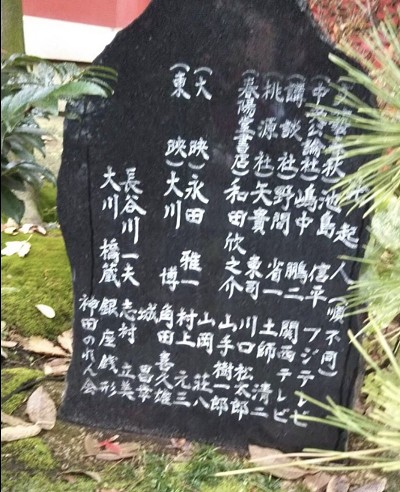 起人(順不同)
(文藝春秋)池島信平 フジテレビ
(中央公論社)嶋中鵬二 関西テレビ
(講談社)野間省一 土師清二
(桃源社)矢貴東司 川口松太郎
(春陽堂書店)和田欣之介 山手樹一郎
山岡荘八
(大映)永田雅一 村上元三
(東映)大川博 角田喜久雄
城昌幸
長谷川一夫 志村立美
大川橋蔵 銀座銭形
神田のれん会